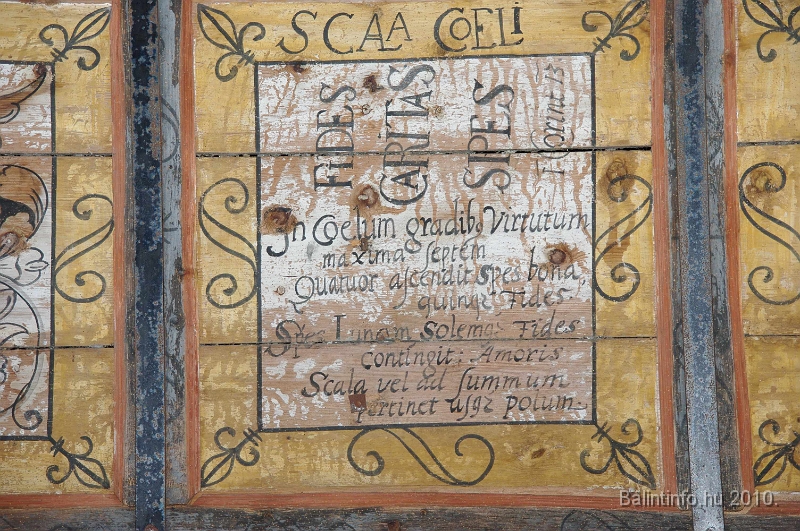 SCALA COELI
FIDES
CARITAS
SPES
1 Corint 13
In Coelum gradibȝ Virtutum
maxima septem
Quatuor ascendit Spes bona,
quinqȝ Fides.
Spes Lunam Solemqȝ Fides
contingit: Amoris
Scala vel ad summum
pertinet usqȝ polum.
Bálintinfo.hu 2010.